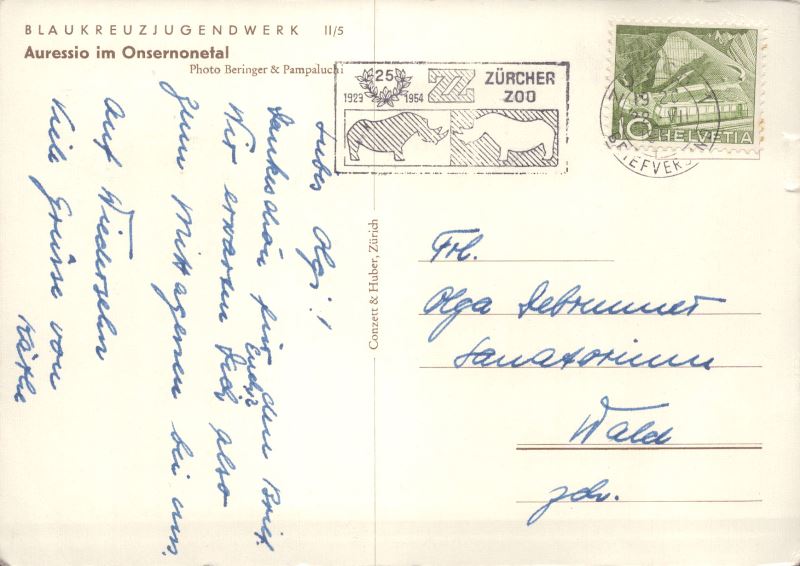 BLAUKREUZJUGENDWERK II/5
Auressio im Onsernonetal
Photo Beringer & Pampaluchi
25
1929 1954
ZÜRCHER
ZOO
10 HELVETIA
BRIEFVERS
Liebes Olgi!
Dankeschön für den Brief.
Wir erwarten Dich also
zum Mittagessen bei uns.
Auf Wiedersehn
Viele Grüsse von
Käthe
Conzett & Huber, Zürich
Frl.
Olga Debrunner
Sanatorium
Wald
Zch.